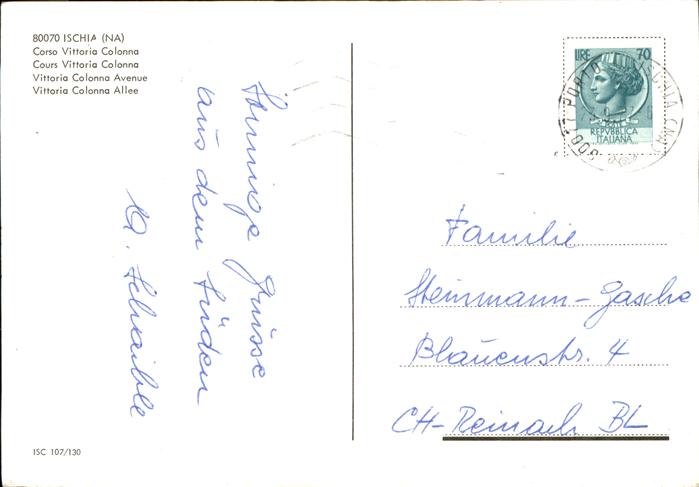 80070 ISCHIA (NA)
Corso Vittoria Colonna
Cours Vittoria Colonna
Vittoria Colonna Avenue
Vittoria Colonna Allee
Sonnige Grüsse
aus dem Süden
Schaible
ISC 107/130
LIRE 70
REPVBBLICA
ITALIANA
PORTO ISCHIA (NA)
Familie
Steinmann-Gasche
Blauenstr. 4
CH-Reinach BL